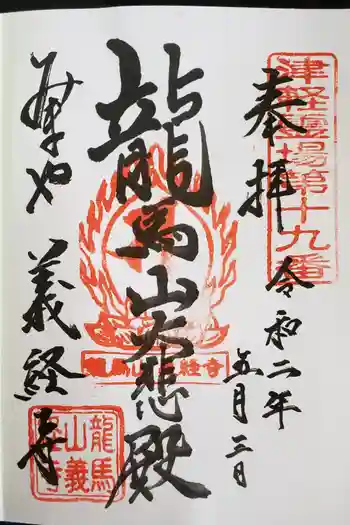 津軽靈場第十九番
奉拝
令和二年
五月三日
龍馬山大悲殿
龍馬山義経寺
義経寺
龍馬山義経寺